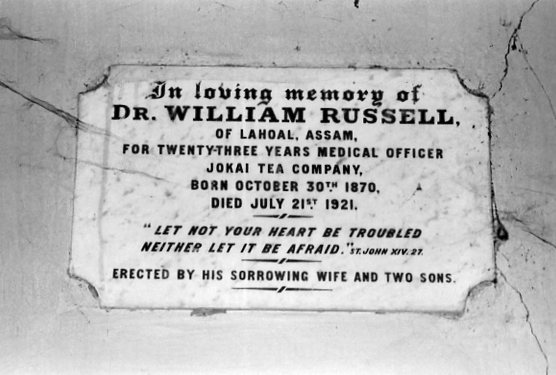 In loving memory of
DR. WILLIAM RUSSELL,
OF LAHOAL, ASSAM,
FOR TWENTY-THREE YEARS MEDICAL OFFICER
JOKAI TEA COMPANY,
BORN OCTOBER 30TH 1870,
DIED JULY 21ST 1921.
"LET NOT YOUR HEART BE TROUBLED
NEITHER LET IT BE AFRAID." ST. JOHN XIV. 27.
ERECTED BY HIS SORROWING WIFE AND TWO SONS.